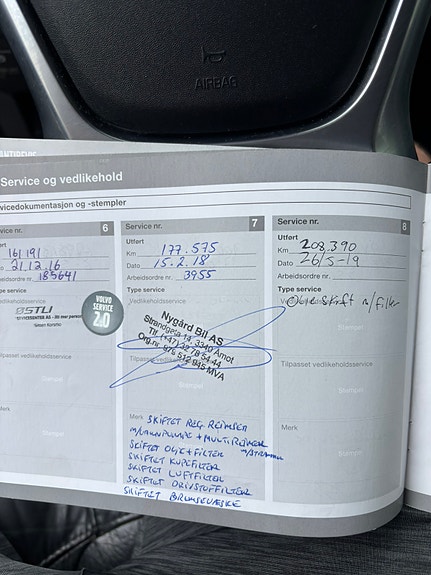 AIRBAG
Service og vedlikehold
vicedokumentasjon og -stempler
6
161 191
21.12.16
Arbeidsordre nr. 185641
STU
VOLVO
SERVICE
2.0
Tilpasset vedlikeholdsservice
Merk
Service nr. 7
Utført
Km 177.575
Dato 15.2.18
Arbeidsordre nr. 3955
Type service
Vedlikeholdsservice
Nygård Bil AS
Strandgata 14, 3340 Åmot
Tlf. (+47) 32 78 54 44
Org.nr. 975 512 945 MVA
Tilpasset
Merk SKIFTET REG. REIMSER
M/VANNPUMPE + MULTIREIMER
SKIFTET OLJE + FILTER
SKIFTET KUPEFILTER
SKIFTET LUFTFILTER
SKIFTET DRIVSTOFFILTER
SKIFTET BREMSEVÆSKE
Service nr. 8
Utført
Km 208.390
Dato 26/5-19
Arbeidsordre nr.
Type service
Vedlikeholdsservice
Olje skift m/filter
Stempel
Tilpasset vedlikeholdsservice
Stempel
Merk
Stempel